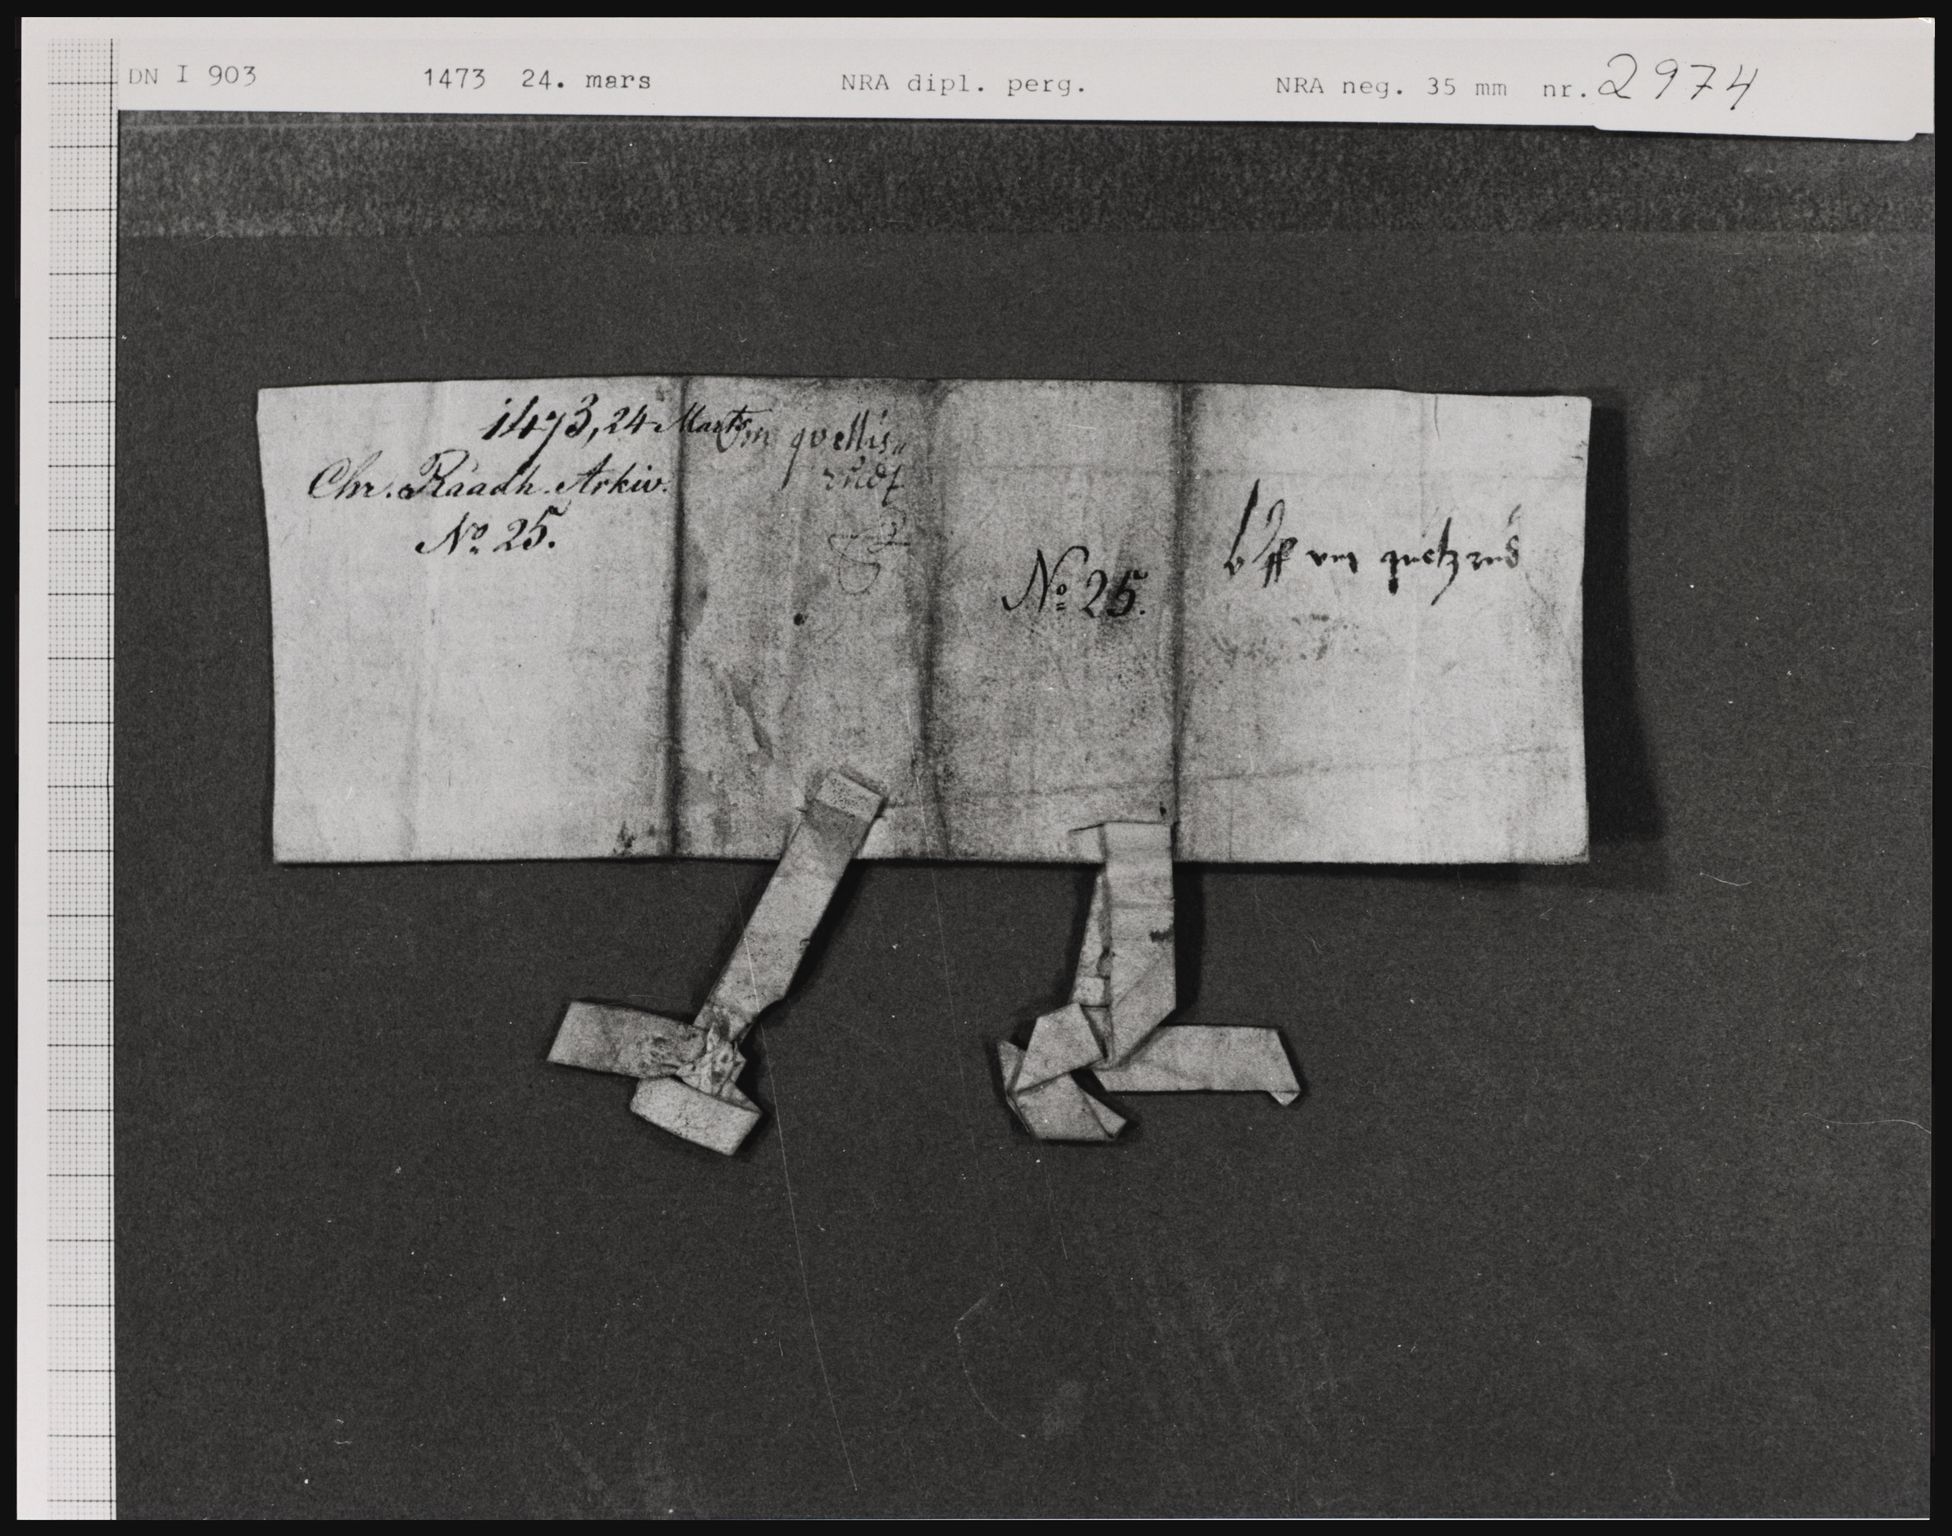 DN I 903 1473 24. mars NRA dipl. perg. NRA neg. 35 mm nr. 2974
1473, 24 Marts.
Chr. Råadh. Arkiv.
No. 25.
Om qvellis„
rudt
No 25.